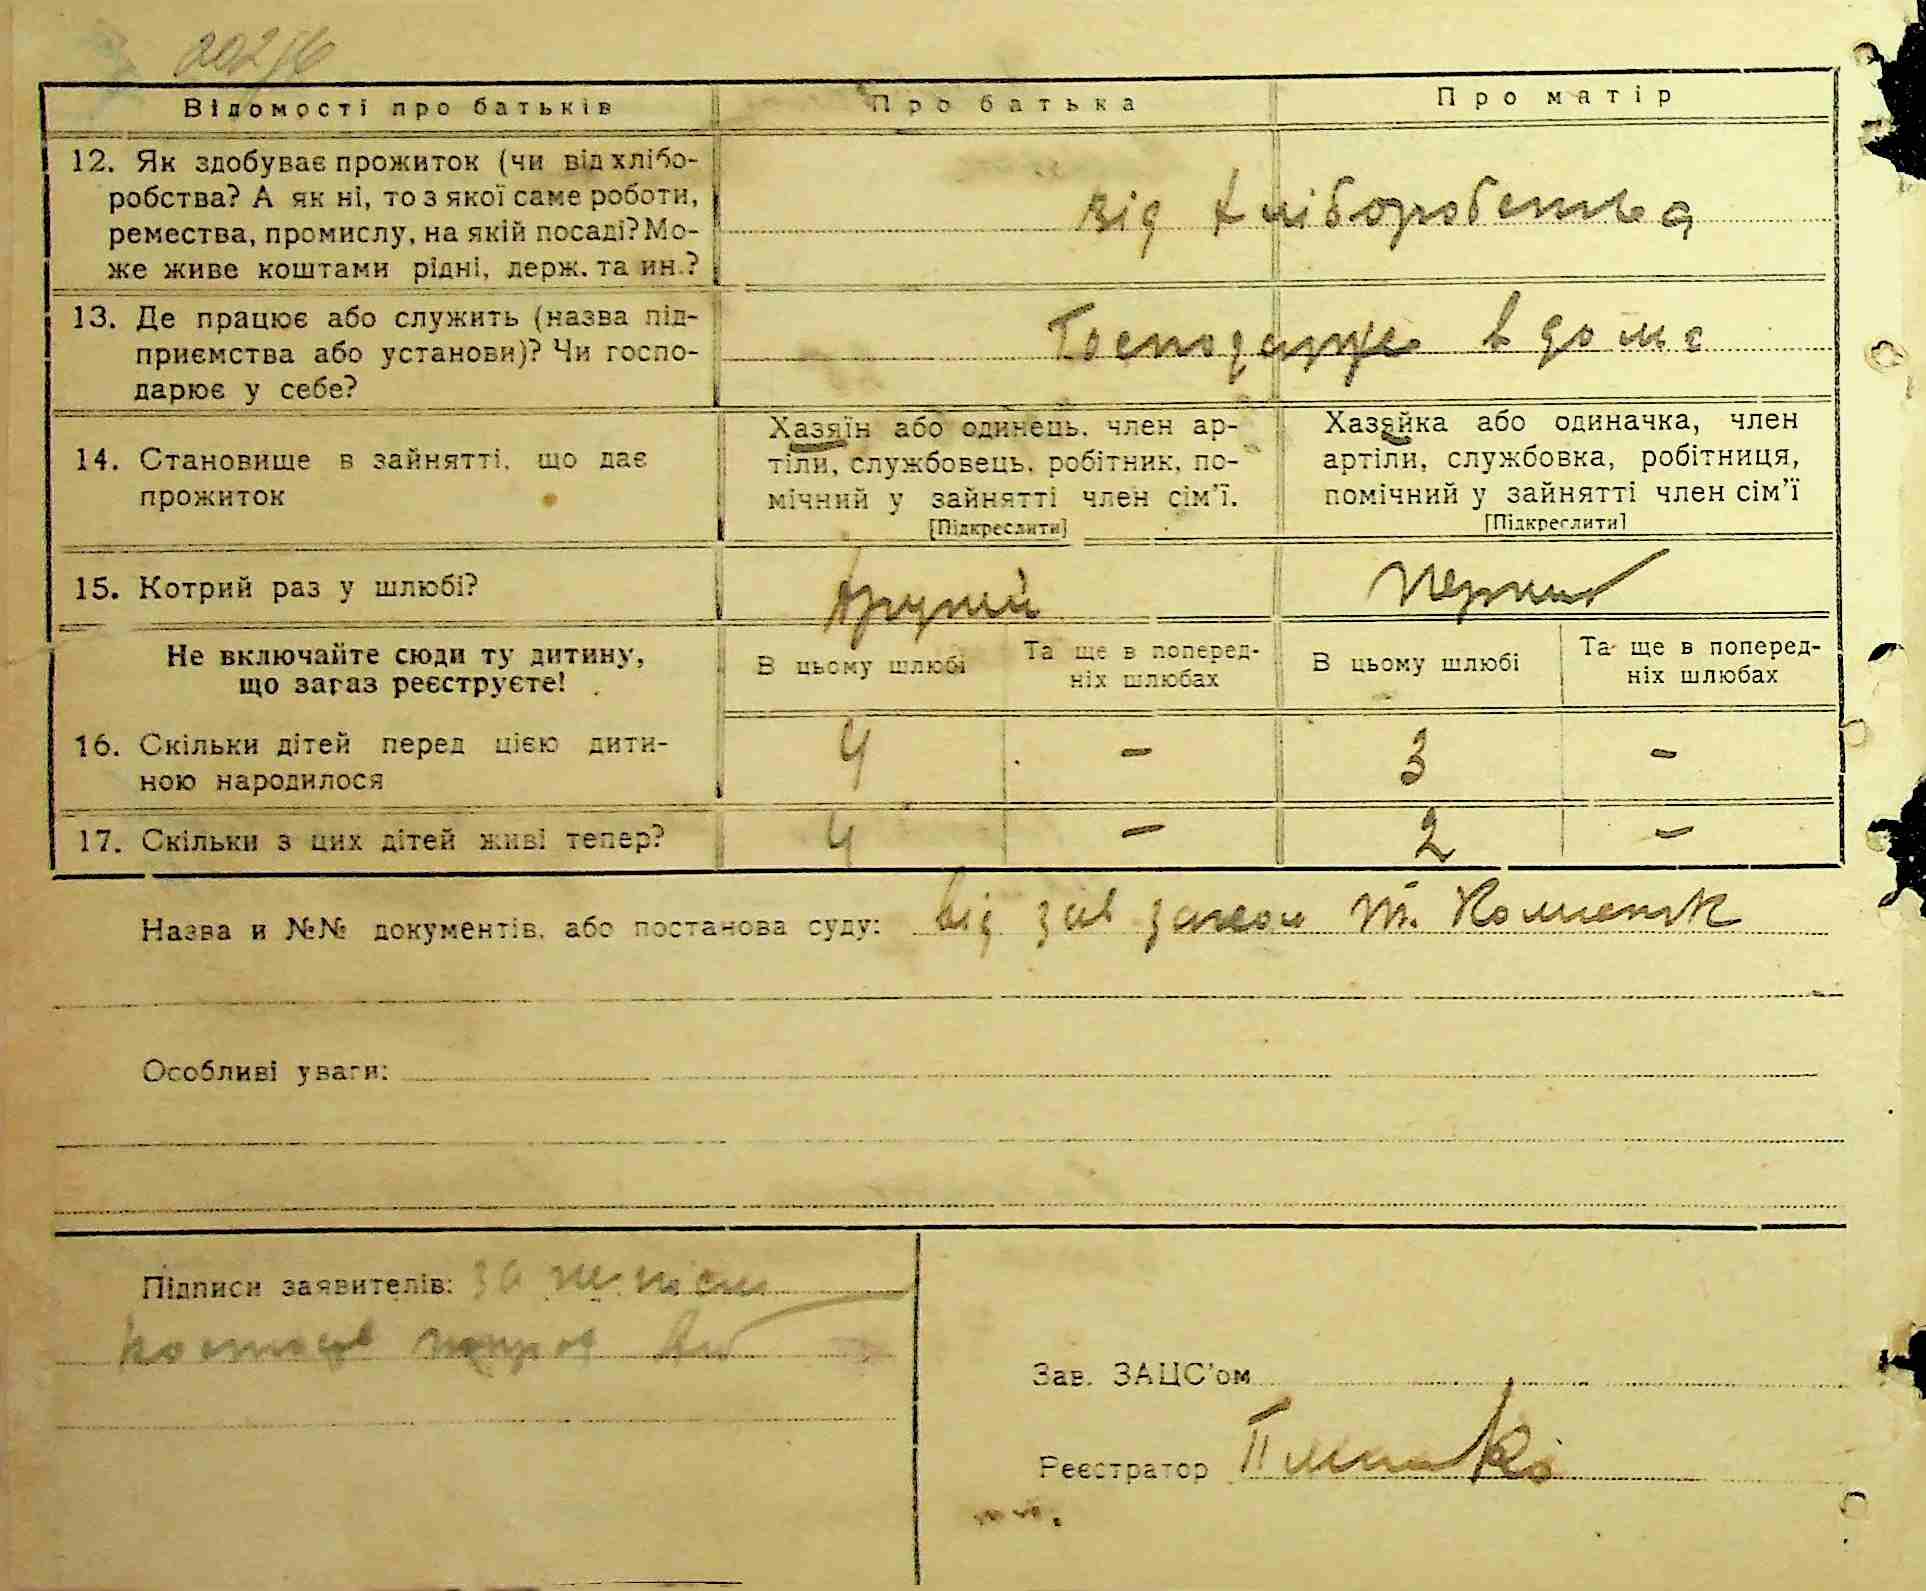 Відомості про батьків Про батька Про матір
12. Як здобуває прожиток (чи від хлібо-
робства? А як ні, то з якої саме роботи,
ремества, промислу, на якій посаді? Мо-
же живе коштами рідні, держ. та ин.?
від хліборобства
13. Де працює або служить (назва під-
приємства або установи)? Чи госпо-
дарює у себе?
Господарує в дома
14. Становище в зайнятті, що дає
прожиток
Хазяїн або одинець, член ар-
тіли, службовець, робітник, по-
мічний у зайнятті член сім'ї.
[Підкреслити]
Хазяйка або одиначка, член
артіли, службовка, робітниця,
помічний у зайнятті член сім'ї
[Підкреслити]
15. Котрий раз у шлюбі? другий перший
Не включайте сюди ту дитину,
що зараз реєструєте!
В цьому шлюбі
Та ще в поперед-
ніх шлюбах
В цьому шлюбі
Та ще в поперед-
ніх шлюбах
16. Скільки дітей перед цією дити-
ною народилося
4 - 3 -
17. Скільки з цих дітей живі тепер? 4 - 2 -
Назва и №№ документів, або постанова суду: від зав
Особливі уваги:
Підписи заявителів: за
Зав. ЗАЦС'ом
Реєстратор